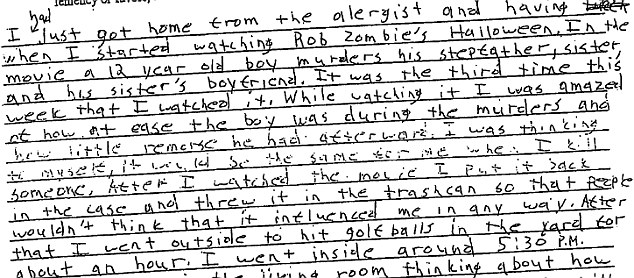 had
I just got home from the alergist and having
when I started watching Rob Zombie's Halloween. In the
movie a 12 year old boy murders his stepfather, sister,
and his sister's boyfriend. It was the third time this
week that I watched it. While watching it I was amazed
at how at ease the boy was during the murders and
how little remorse he had afterward. I was thinking
to myself, it would be the same for me when I kill
someone. After I watched the movie I put it back
in the case and threw it in the trashcan so that people
wouldn't think that it influenced me in any way. After
that I went outside to hit golf balls in the yard for
about an hour. I went inside around 5:30 P.M.
the living room thinking about how